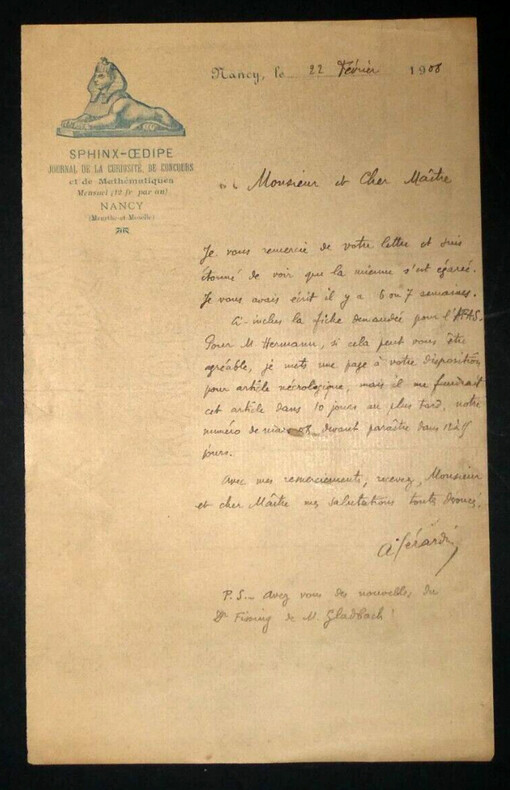 Nancy, le 22 Février 1908
SPHINX-ŒDIPE
JOURNAL DE LA CURIOSITÉ, DE CONCOURS
et de Mathématiques
Mensuel (12 fr. par an)
NANCY
(Meurthe-et-Moselle)
Monsieur et Cher Maître
Je vous remercie de votre lettre et suis
étonné de voir que la mienne s'est égarée.
Je vous avais écrit il y a 6 ou 7 semaines.
Ci-inclus la fiche demandée pour l'AFAS.
Pour M. Hermann, si cela peut vous être
agréable, je mets une page à votre disposition
pour article nécrologique, mais il me faudrait
cet article dans 10 jours au plus tard, notre
numéro de mars 08 devant paraître dans
jours.
Avec mes remerciements, recevez, Monsieur
et cher Maître mes salutations toutes dévouées.
A. Gérardin
P.S. _ Avez vous des nouvelles du
Dr de M. Gladbach ?